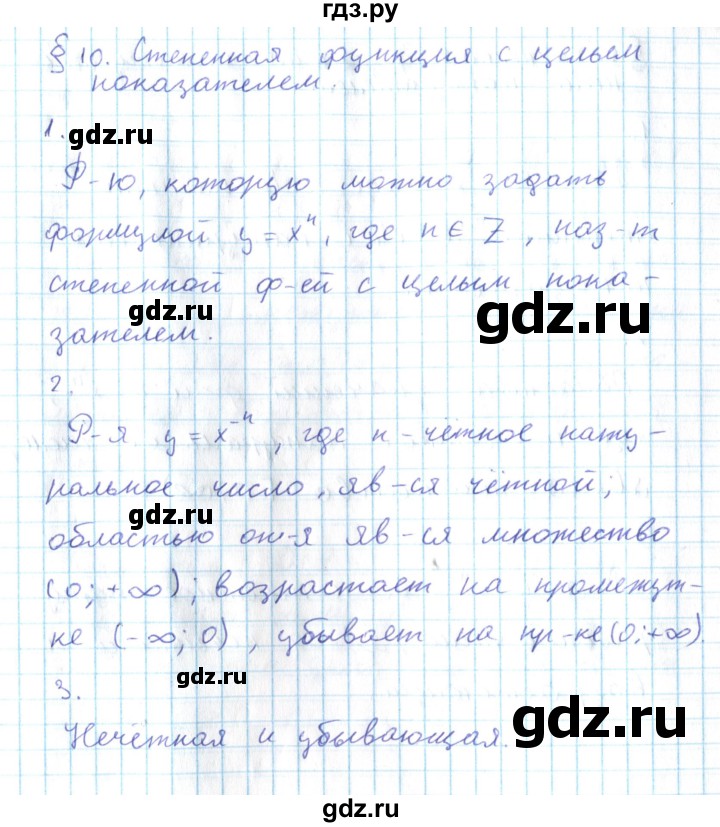 гдз.ру
§ 10. Степенная функция с целым
показателем.
1.
gdz.ru
Ф-ю, которую можно задать
формулой y = x^n, где n ∈ Z, наз-т
степенной ф-ей с целым пока-
gdz.ru
gdz.ru
зателем.
2.
Ф-я y = x^-n, где n - чётное нату-
gdz.ru
ральное число, яв-ся чётной;
gdz.ru
областью оп-я яв-ся множество
(0; +∞); возрастает на промежут-
ке (-∞; 0), убывает на пр-ке (0; +∞).
gdz.ru
3.
gdz.ru
Нечётная и убывающая.
gdz.ru